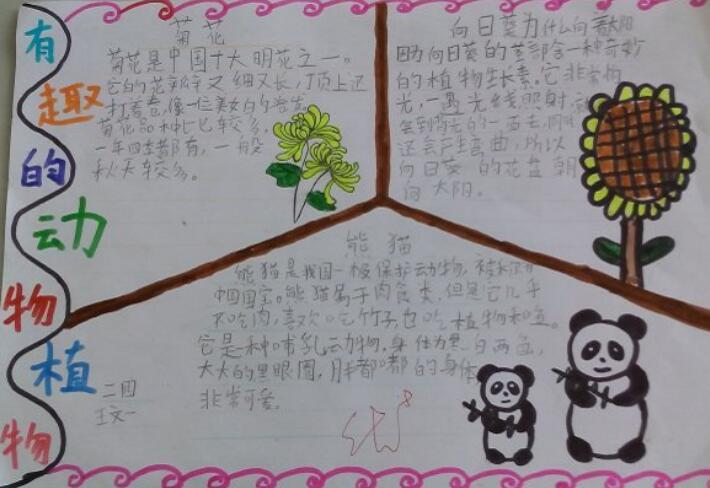 有趣的动物植物
菊花
菊花是中国十大明花之一。
它的花瓣又细又长,顶上还
打着卷,像一位美女的卷发。
菊花品种比较多,
一年四季都有,一般
秋天较多。
向日葵为什么向着太阳
因为向日葵的茎部含一种奇妙
的植物生长素。它非常怕
光,一遇光线照射,
会到背光的一面去,同时
还会产生弯曲,所以
向日葵的花盘朝
向太阳。
熊猫
熊猫是我国一极保护动物,被称为
中国国宝。熊猫属于肉食类,但是它几乎
不吃肉,喜欢吃竹子,也吃植物和鱼。
它是种哺乳动物,身体为黑白两色,
大大的黑眼圈,胖都嘟的身体
非常可爱。
二四
王文一
优